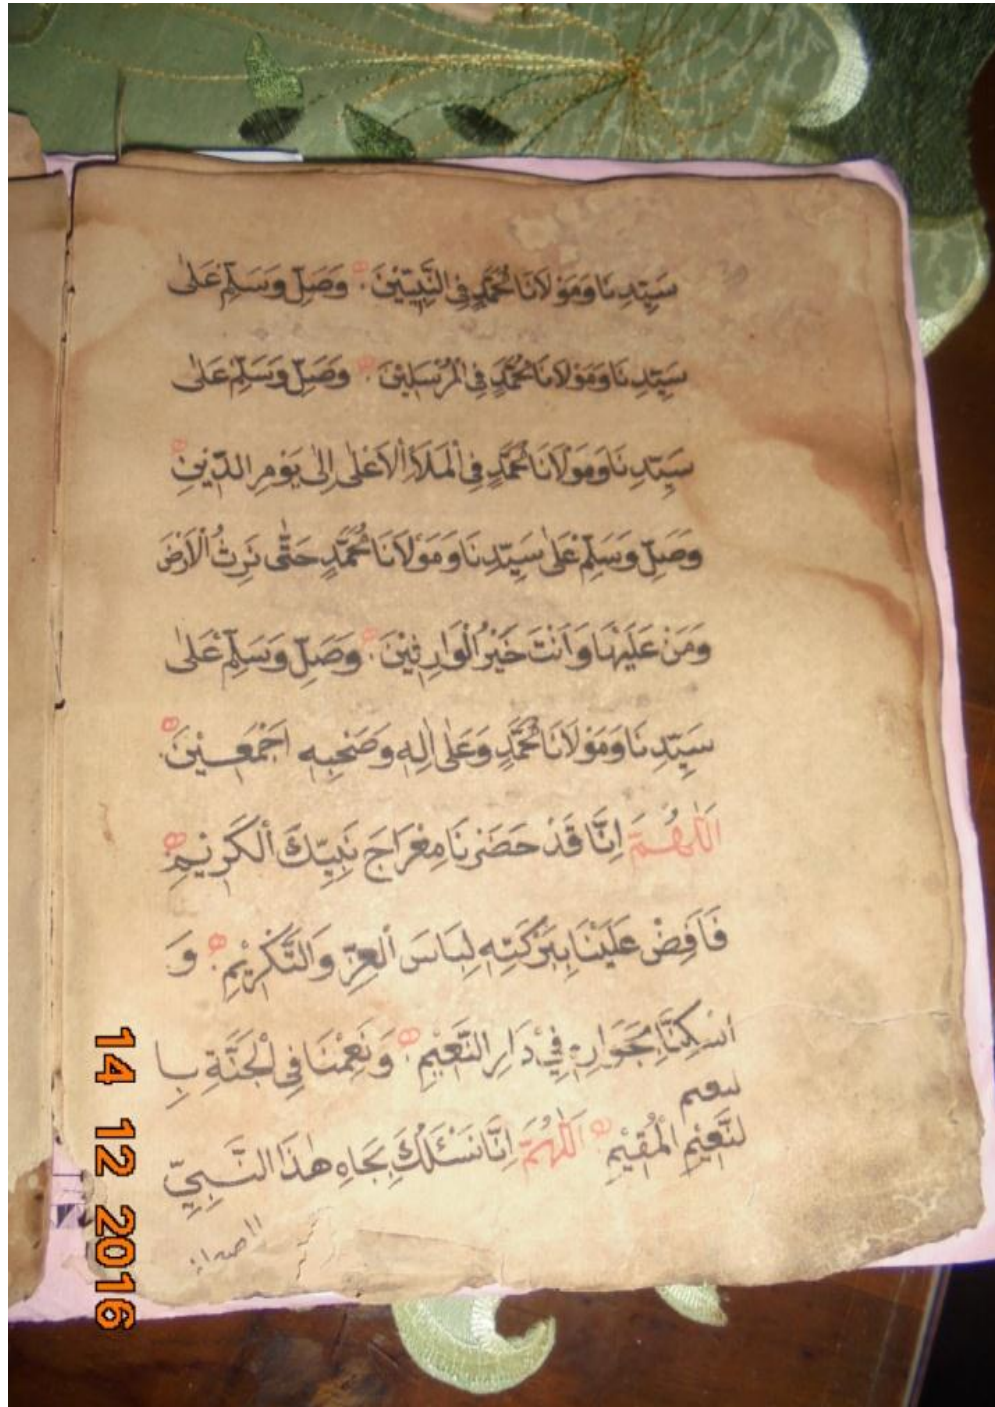 سَيِّدِنَا وَمَوْلَانَا مُحَمَّدٍ فِى النَّبِيِّيْنَ وَصَلِّ وَسَلِّمْ عَلٰى
سَيِّدِنَا وَمَوْلَانَا مُحَمَّدٍ فِى الْمُرْسَلِيْنَ وَصَلِّ وَسَلِّمْ عَلٰى
سَيِّدِنَا وَمَوْلَانَا مُحَمَّدٍ فِى الْمَلَاِ الْاَعْلٰى اِلٰى يَوْمِ الدِّيْنِ
وَصَلِّ وَسَلِّمْ عَلٰى سَيِّدِنَا وَمَوْلَانَا مُحَمَّدٍ حَتّٰى تَرِثُ الْاَرْضَ
وَمَنْ عَلَيْهَا وَاَنْتَ خَيْرُ الْوَارِثِيْنَ وَصَلِّ وَسَلِّمْ عَلٰى
سَيِّدِنَا وَمَوْلَانَا مُحَمَّدٍ وَعَلٰى اٰلِهٖ وَصَحْبِهٖ اَجْمَعِيْنَ
اَللّٰهُمَّ اِنَّا قَدْ حَضَرْنَا مِعْرَاجَ نَبِيِّكَ الْكَرِيْمِ
فَاَفِضْ عَلَيْنَا بِبَرَكَتِهٖ لِبَاسَ الْعِزِّ وَالتَّكْرِيْمِ وَ
اَسْكِنَّا بِجَوَارِهٖ فِيْ دَارِ النَّعِيْمِ وَنَعِّمْنَا فِى الْجَنَّةِ بِا
لنعيم
لنَّعِيْمِ الْمُقِيْمِ اَللّٰهُمَّ اِنَّا نَسْئَلُكَ بِجَاهِ هٰذَا النَّبِيِّ
14 12 2016